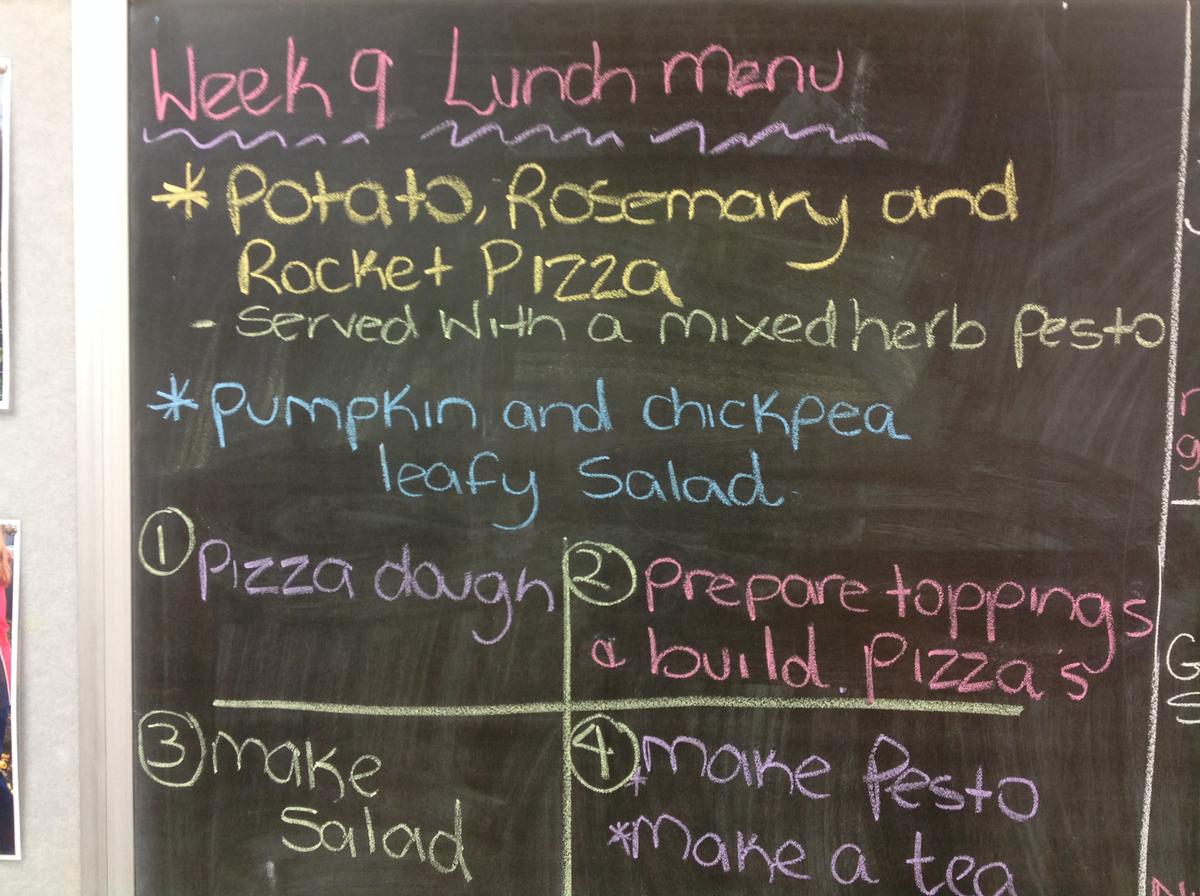 Week 9 Lunch Menu
* Potato, Rosemary and
Rocket Pizza
- Served with a mixed herb pesto
* Pumpkin and chickpea
leafy Salad.
1 Pizza dough
2 Prepare toppings
& build. Pizza's
3 make
Salad
4 * make Pesto
* Make a tea